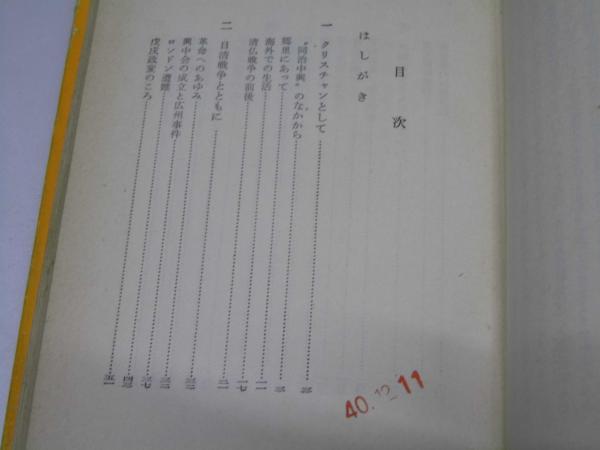 目次
はしがき
一 クリスチャンとして
“同治中興”のなかから……三
郷里にあって……三
海外での生活……一一
清仏戦争の前後……一七
二 日清戦争とともに……二一
革命へのあゆみ
興中会の成立と広州事件
ロンドン遭難……三七
戊戌政変のころ
40.12.11